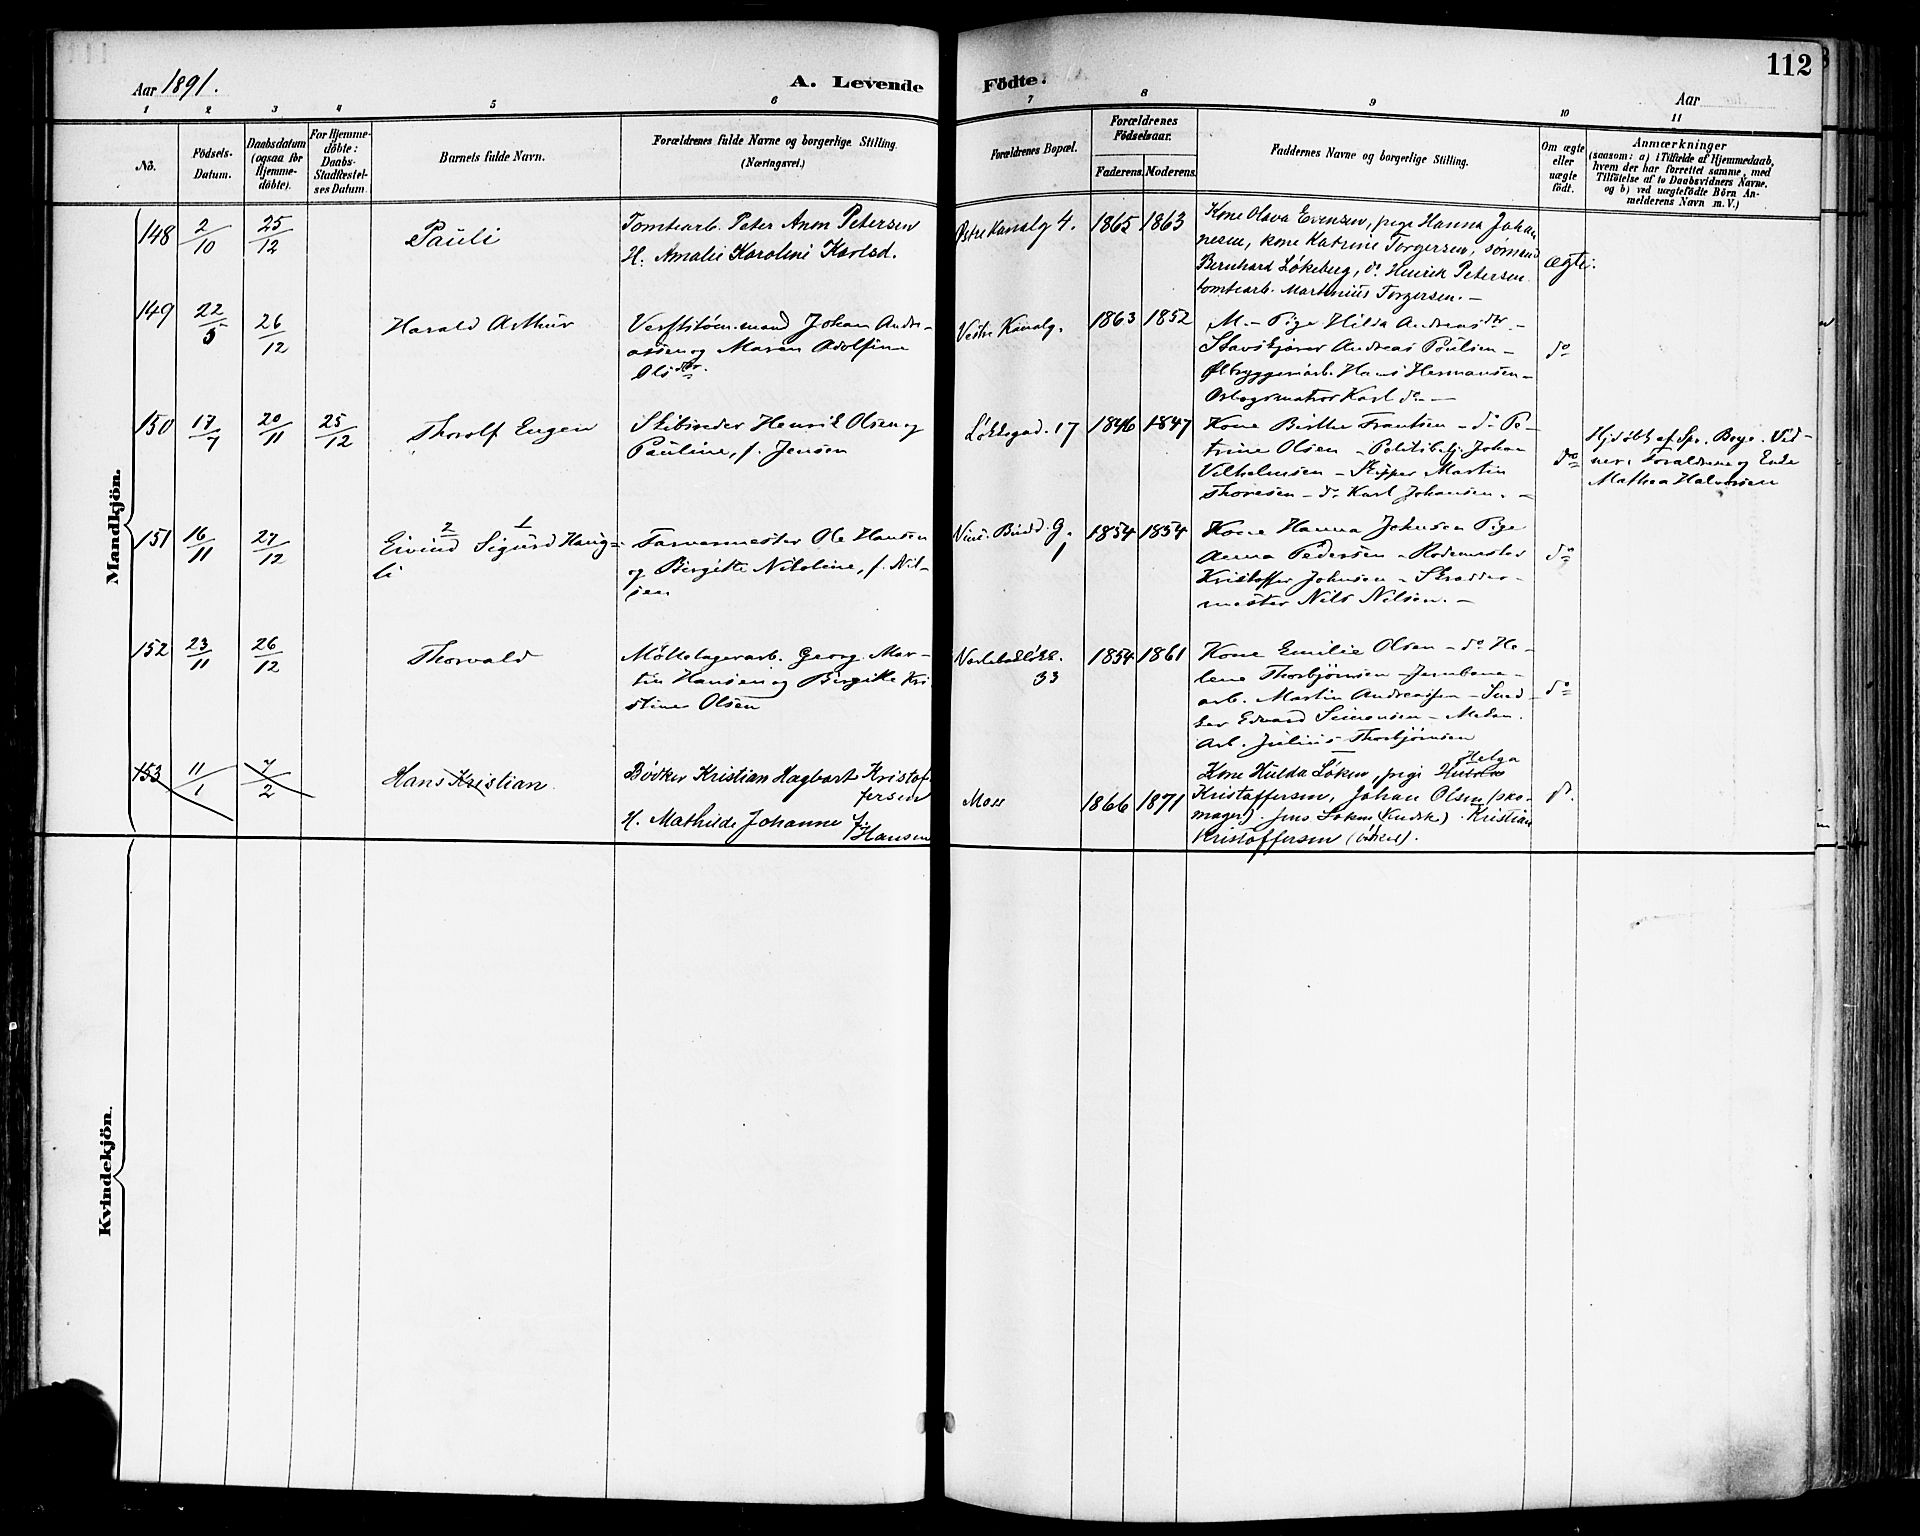 112
Aar 1891.
A. Levende
Födte.
Aar
1 2 3 4 5 6 7 8 9 10 11
No.
Födsels-
Datum.
Daabsdatum
(ogsaa for
Hjemme-
döbte).
For Hjemme-
döbte:
Daabs-
Stadfæstel-
ses Datum.
Barnets fulde Navn.
Forældrenes fulde Navne og borgerlige Stilling.
(Næringsvei.)
Forældrenes Bopæl.
Forældrenes
Födselsaar.
Faderens. Moderens.
Faddernes Navne og borgerlige Stilling.
Om ægte
eller
uægte
födt.
Anmærkninger
(saasom: a) i Tilfælde af Hjemmedaab,
hvem der har forrettet samme, med
Tilföielse af to Daabsvidners Navne,
og b) ved uægtefödte Börn An-
melderens Navn m. V.)
Mandkjön.
148 2/10 25/12
Pauli
Tomtearb. Peter Anon Petersen
H. Amalie Karoline Karlsd.
Østre Kanalg 4. 1865 1863
Kone Olava Evensen, pige Hanna Johan
nesen, kone Katrine Torgersen, sømand
Bernhard Løkeberg, do Henrik Petersen
tomtearb. Martinius Torgersen. —
ægte.
149 22/5 26/12
Harald Arthur
Verftstøm.mand Johan Andre-
assen og Maren Adolfine
Olsdtr.
Vestre Kanalg. 1863 1852
M. — Pige Hilda Andreasdtr. —
Andreas Poulsen —
Ølbryggeriarb. Hans Hermansen —
Karl do —
do
150 17/7 20/11 25/12
Thorolf Eugen
Skibsreder Henrik Olsen og
Pauline, f. Jensen
Løkkegad. 17 1846 1847
Kone Birthe Frantsen — do Pe-
trine Olsen — Politibetj. Johan
Vilhelmsen — Skipper Martin
Thoresen — do Karl Johansen. —
do
Hjdøbt af Spr. Boye. Vid-
ner: Forældrene og Enke
Mathea Halvorsen
151 16/11 27/12
2 1
Eivind Sigurd Haug-
li
Farvermester Ole Hansen
og Birgitte Nikoline, f. Nil-
sen
G. 1 1854 1854
Kone Hanna Johnsen Pige
Anna Pedersen — Rodemester
Kristoffer Johnsen — Skrædder-
mester Nils Nilsen. —
do
152 23/11 26/12
Thorvald
Møllelagerarb. Georg Mar-
tin Hansen og Birgitte Kri-
stine Olsen
33 1854 1861
Kone Emilie Olsen — do He-
lene Thorbjørnsen — Jernbane-
arb. Martin Andreassen — Sned-
ker Edvard Simonsen — Mekan.
Arb. Julius Thorbjørnsen
do
153 11/1 7/2
Hans Kristian
Bødker Kristian Hagbart Kristof-
fersen
H. Mathilde Johanne f. Hansen
Moss 1866 1871
Kone Hulda Løken, pige Helga
Kristoffersen, Johan Olsen (sko-
mager). Jens Løken (Kudsk). Kristian
Kristoffersen (bødker).
do.
Kvindekjön.